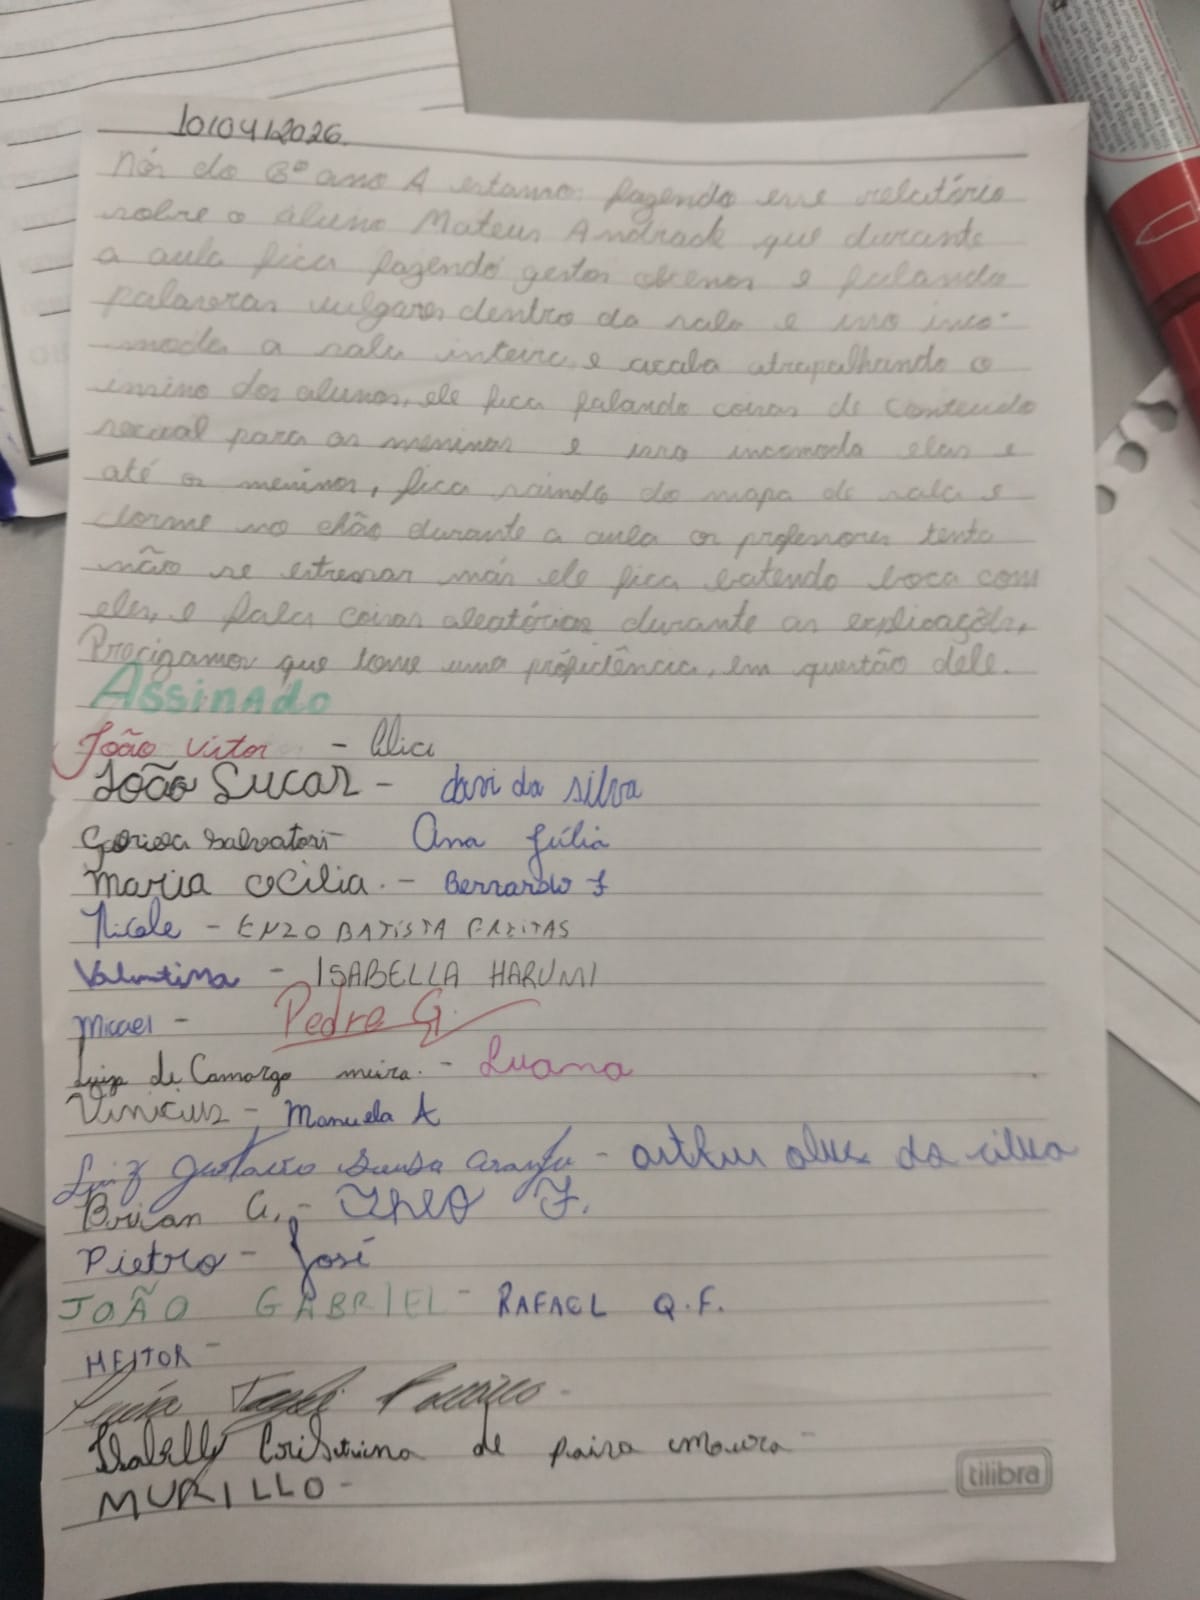 10/04/2026.
Nós do 6º ano A estamos fazendo esse relatório
sobre o aluno Mateus Andrade que durante
a aula fica fazendo gestos obsenos e falando
palavras vulgares dentro da sala e isso inco-
moda a sala inteira, e acaba atrapalhando o
ensino dos alunos, ele fica falando coisas de conteudo
sexual para as meninas e isso incomoda elas e
até os meninos, fica saindo do mapa de sala e
dorme no chão durante a aula os professores tenta
não se estresar mas ele fica batendo boca com
eles, e fala coisas aleatórias durante as explicações,
Precizamos que tome uma profidência, em questão dele.
Assinado
João Victor - Alice
João Lucas - davi da silva
Salvatori - Ana Júlia
Maria Cecilia. - Bernardo F
Nicole - ENZO BATISTA FREITAS
Valentina - ISABELLA HARUMI
Micael - Pedro G.
Luiza de Camargo meira. - Luana
Vinicius - Manuela A
Luiz Gustavo Sousa Araujo - arthur alves da silva
Brian G. - Theo F.
Pietro - José
JOÃO GABRIEL - RAFAEL Q.F.
HEITOR -
Isabelly Cristina de paiva moura -
MURILLO -
tilibra